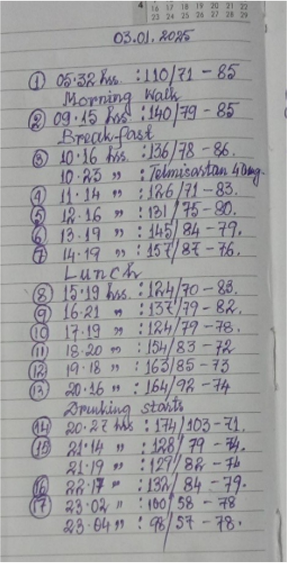 4 16 17 18 19 20 21 22
23 24 25 26 27 28 29
03.01.2025
① 05.32 hrs. : 110/71 - 85
Morning Walk
② 09.15 hrs : 140/79 - 85
Breakfast
③ 10.16 hrs : 136/78 - 86.
10.23 " : Telmisartan 40mg.
④ 11.14 " : 126/71 - 83.
⑤ 12.16 " : 131/75 - 80.
⑥ 13.19 " : 145/84 - 79.
⑦ 14.19 " : 157/87 - 76.
Lunch
⑧ 15.19 hrs : 124/70 - 83.
⑨ 16.21 " : 137/79 - 82.
⑩ 17.19 " : 124/79 - 78.
⑪ 18.20 " : 154/83 - 72
⑫ 19.18 " : 163/85 - 73
⑬ 20.16 " : 164/92 - 74
Drinking starts
⑭ 20.27 hrs : 174/103 - 71.
⑮ 21.14 " : 128/79 - 74.
21.19 " : 127/82 - 76
⑯ 22.17 " : 132/84 - 79.
⑰ 23.02 " : 100/58 - 78
23.04 " : 98/57 - 78.